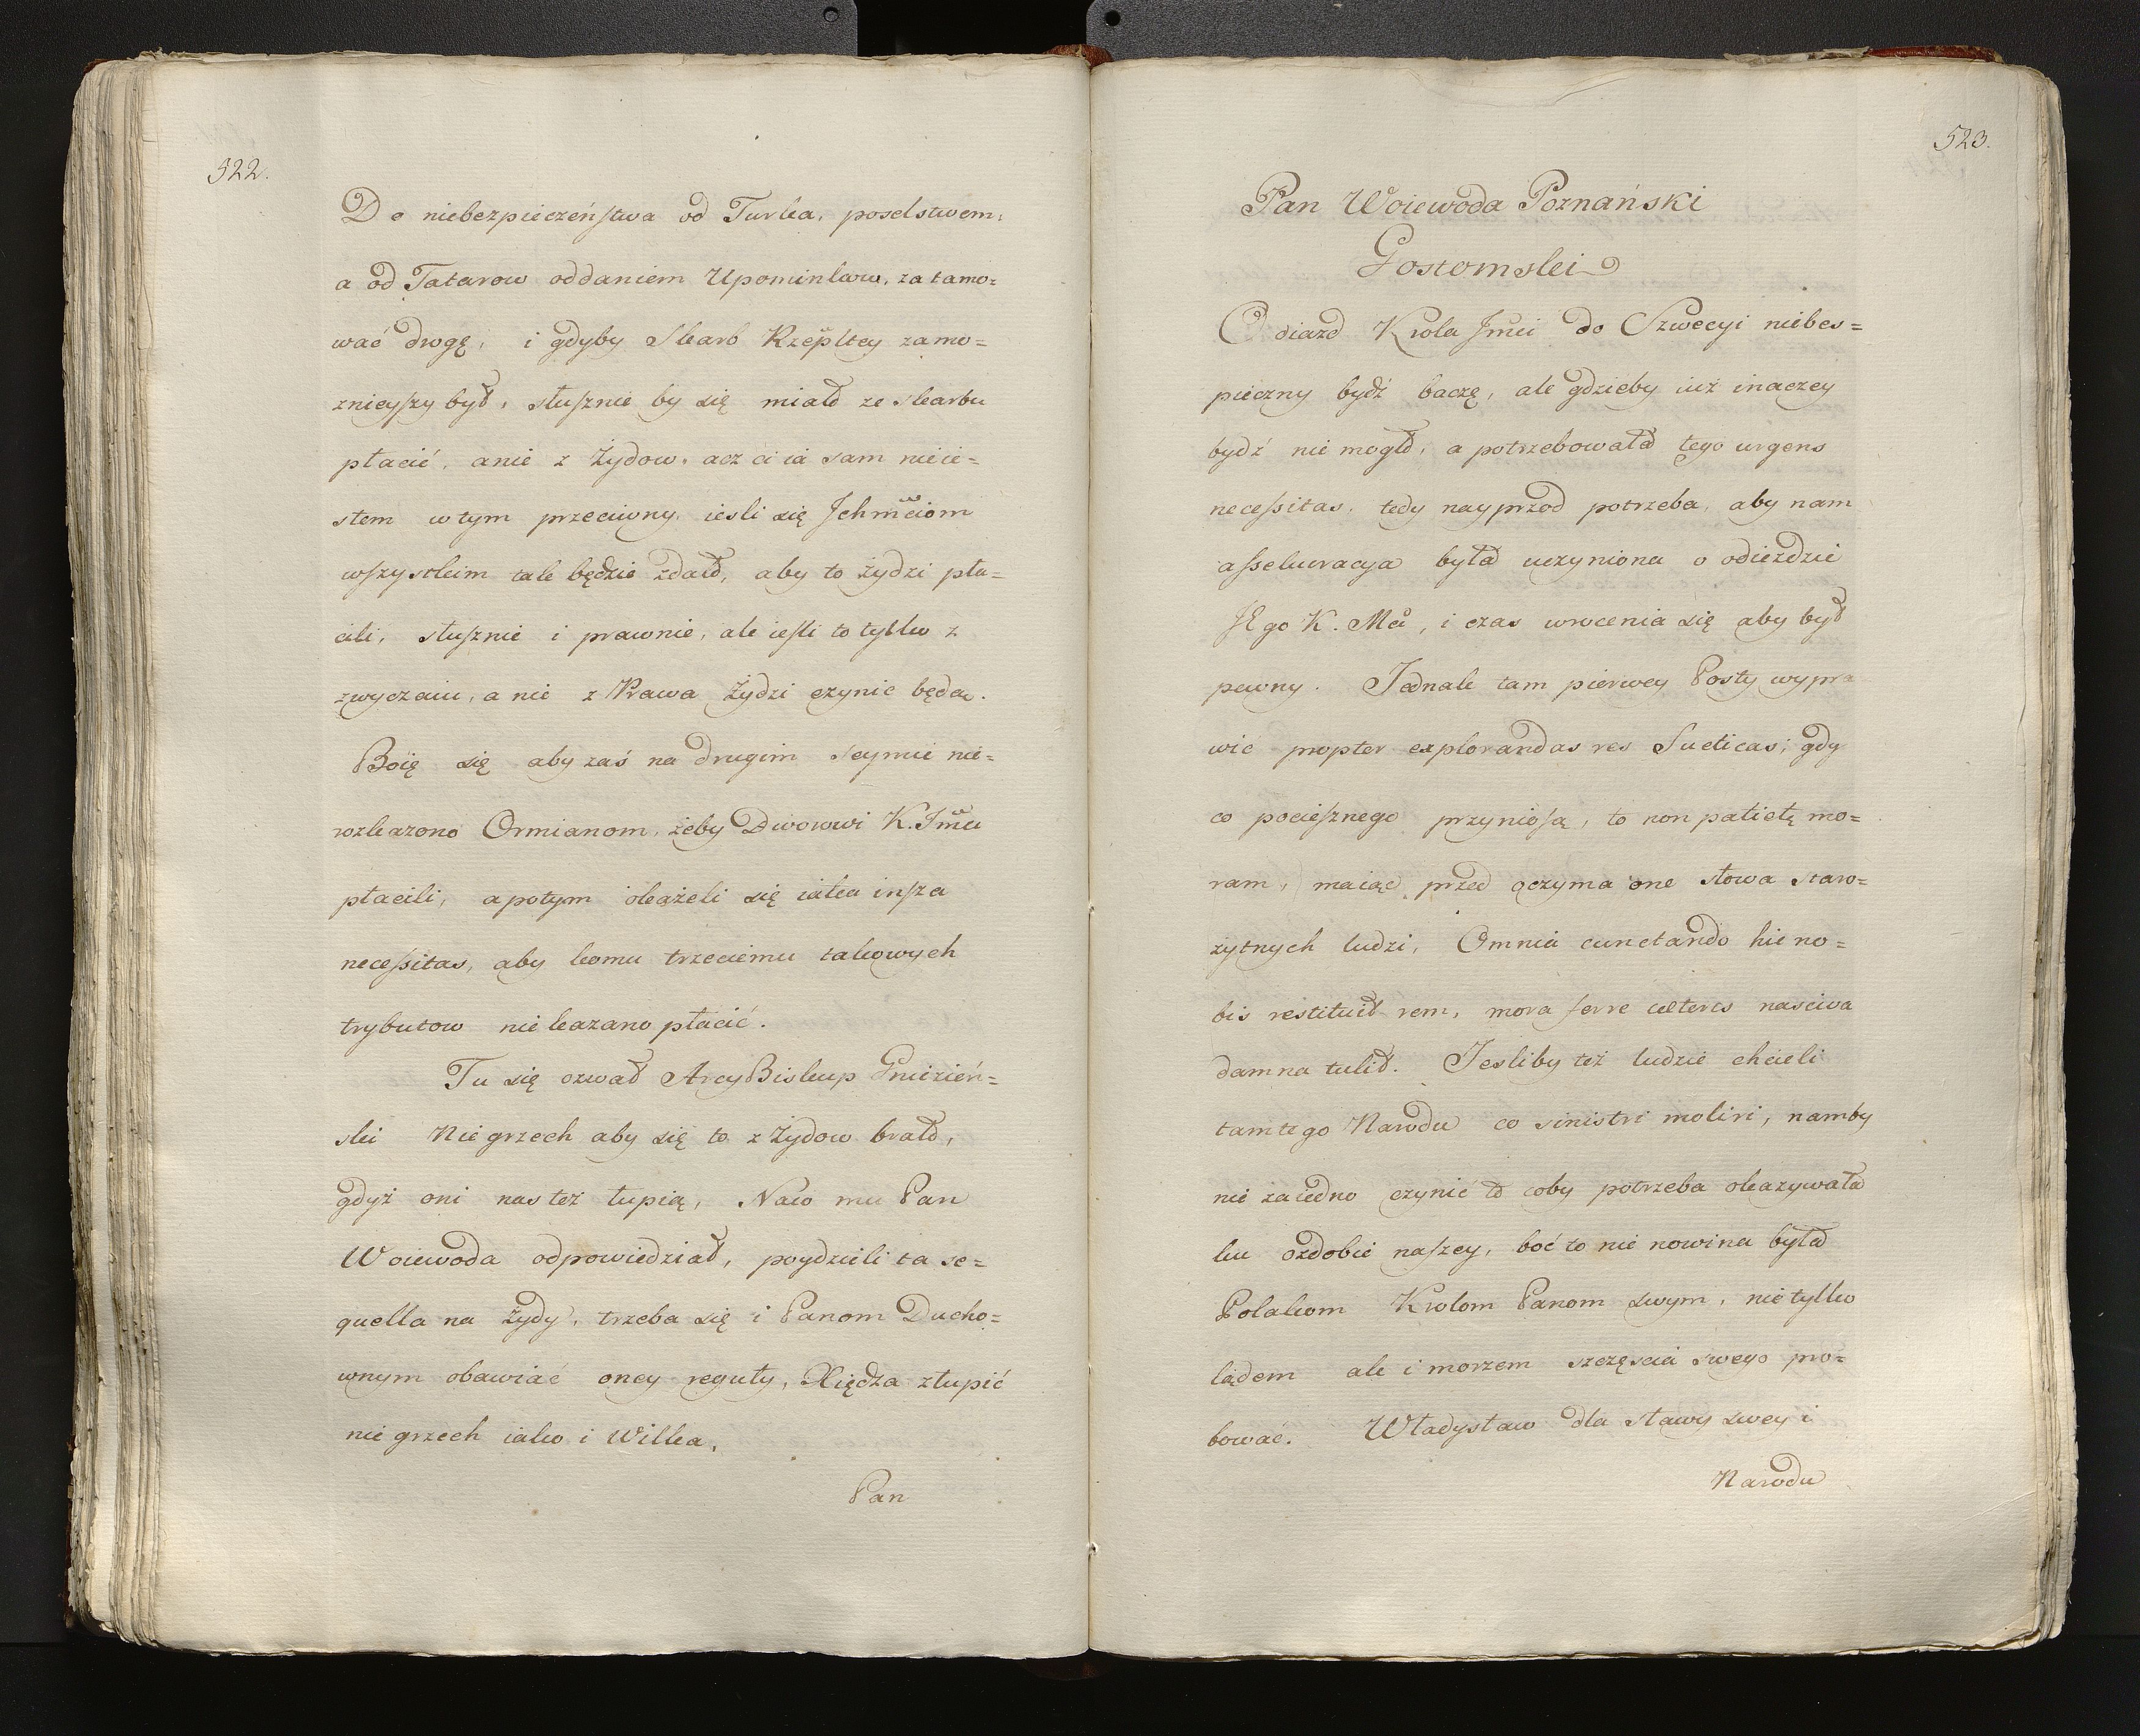 522.
Do niebezpieczeństwa od Turka, poselstwem,
a od Tatarow oddaniem Upominkow, zatamo=
wać drogę, i gdyby Skarb Rzepltey zamo=
znieyszy był, słusznie by się miało ze skarbu
płacić, anie z Żydow, acz ci ia sam nieie=
stem w tym przeciwny, iesli się Ichmciom
wszystkim tak będzie zdało, aby to żydzi pła=
cili, słusznie i prawnie, ale iesli to tylko z
zwyczaiu, a nie z Prawa Żydzi czynic będą.
Boię się aby zaś na drugim Seymie nie=
rozkazono Ormianom, żeby Dworowi K. Jmci
płacili, a potym okażeli się iaka insza
necessitas, aby komu trzeciemu takowych
trybutow nie kazano płacić.
Tu się ozwał ArcyBiskup Gnieźień=
ski Nie grzech aby się to z Żydow brało,
gdyż oni nas też łupią, Naco mu Pan
Woiewoda odpowiedział, poydzieli ta se=
quella na Żydy, trzeba się i PanomDucho=
wnym obawiać oney reguły, Xiędza złupić
nie grzech iako i Wilka,
Pan
523.
Pan Woiewoda Poznański
Gostomski
Odiazd Krola Jmci do Szwecyi niebes=
pieczny bydź baczę, ale gdzieby iuż inaczey
bydź nie mogło, a potrzebowała tego urgens
necessitas, tedy nayprzod potrzeba, aby nam
assekuracya była uczyniona o odieździe
JEgo K. Mci, i czas wrocenia się aby był
pewny. Jednak tam pierwey Posły wypra
wić propter explorandas res Sueticas; gdy
co pociesznego przyniosą, to non patietę mo=
ram, maiąc przed oczyma one słowa staro=
żytnych ludzi, Omnia cunctando hic no=
bis restituit rem, mora ferre cæteris nasciva
damna tulit. Jesliby też ludzie chcieli
tamtego Narodu co sinistri moliri, namby
nie zaiedno czynić to coby potrzeba okazywała
ku ozdobie naszey, boć to nie nowina była
Polakom Krolom Panom swym, nie tylko
lądem ale i morzem szczęscia swego pro=
bować. Władysław dla sławy swey i
Narodu